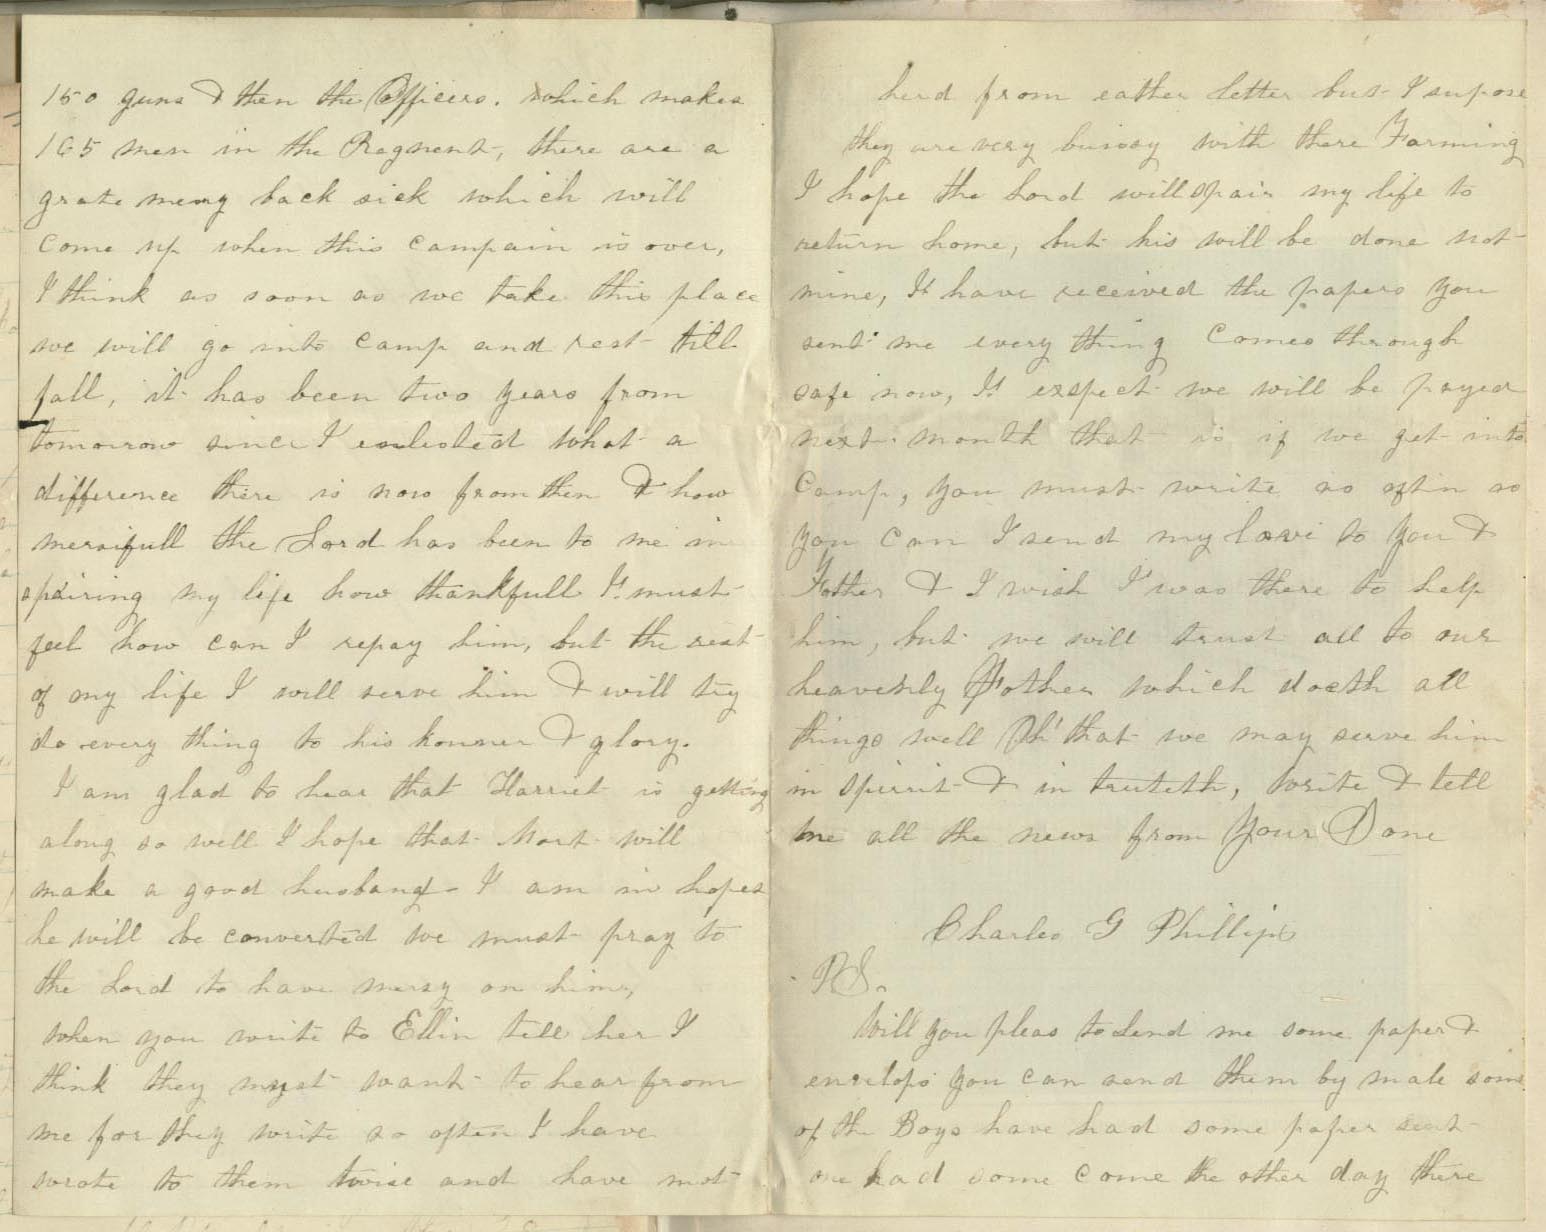 150 guns & then the Officers. which makes
165 men in the Regment, there are a
grate meny back sick which will
come up when this campain is over,
I think as soon as we take this place
we will go into camp and rest till
fall, it has been two years from
tomorrow since I enlested what a
difference there is now from then & how
mersifull the Lord has been to me in
spairing my life how thankfull I must
feel how can I repay him, but the rest
of my life I will serve him & will try
do every thing to his honner & glory.
I am glad to hear that Harriet is getting
along so well I hope that Mort will
make a good husband I am in hopes
he will be converted we must pray to
the Lord to have mersy on him,
when you write to Ellin tell her I
think they myst want to hear from
me for they write so often I have
wrote to them twise and have not
herd from eather letter but I supose
they are very buissy with there Farming
I hope the Lord will spair my life to
return home, but his will be done not
mine, I have received the papers you
sent me every thing comes through
safe now, I exspect we will be payed
next month that is if we get into
camp, you must write as oftin as
you can I send my love to you &
Father & I wish I was there to help
him, but we will trust all to our
heavenly Father which doeth all
things well Oh' that we may serve him
in spirrit & in truteth, write & tell
me all the news from Your Sone
Charles G Phillips
P.S.
Will you pleas to send me some paper &
envelops you can send them by male some
of the Boys have had some paper sent
one had some come the other day there